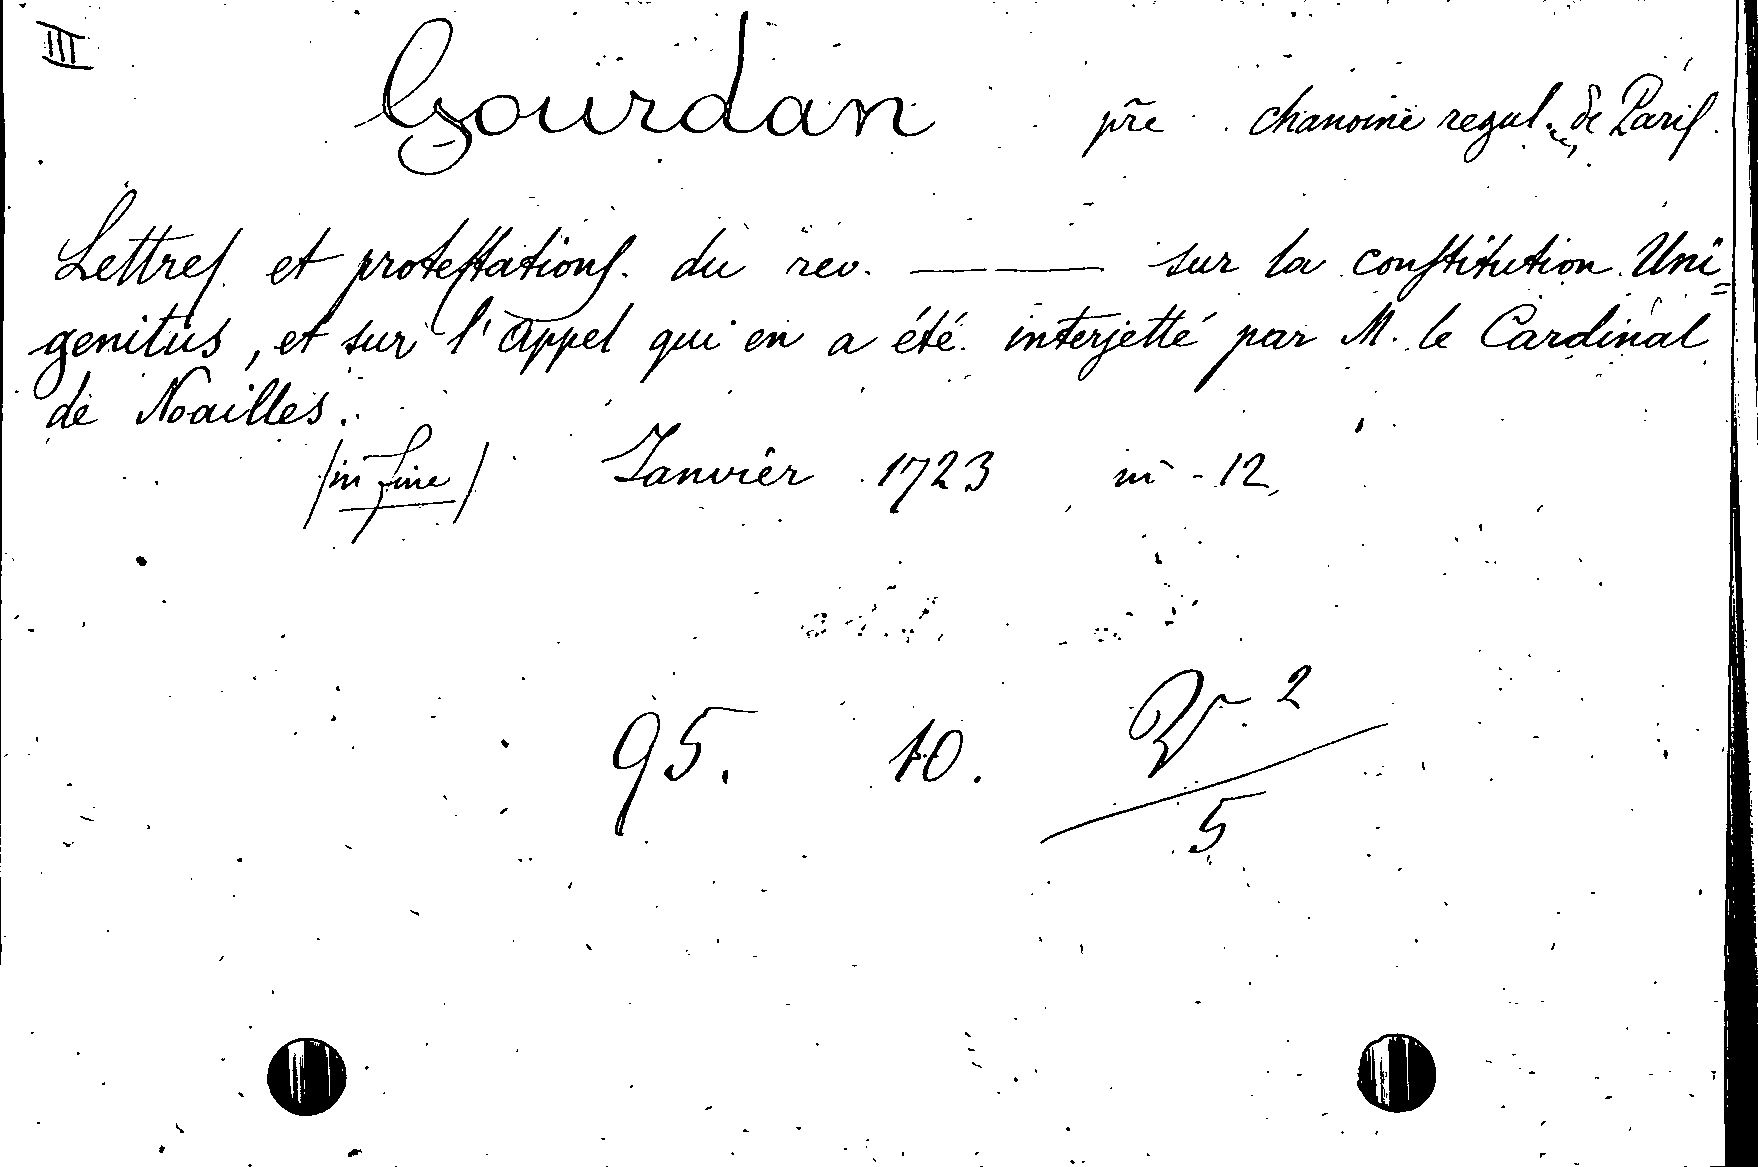 III
Gourdan pr̃e chanoine regul. de Paris.
Lettres et protestations du rev. ——— sur la constitution Uni=
genitus, et sur l'appel qui en a été interjetté par M. le Cardinal
de Noailles.
/in fine/ Janvier 1723 in-12
95. 10. 2
5